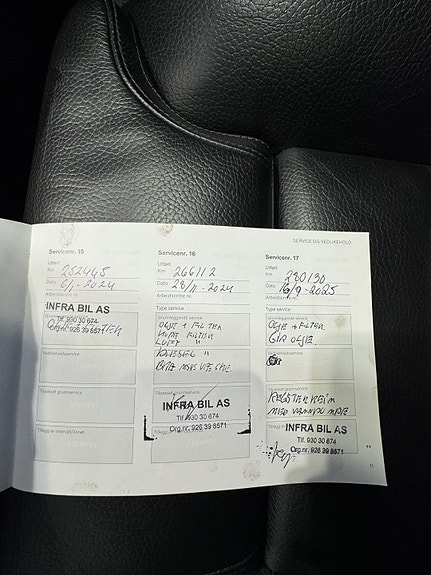 SERVICE OG VEDLIKEHOLD
Servicenr. 15
Utført
Km 252448
Dato 6/1-2024
Arbeidsordre nr.
INFRA BIL AS
Tlf. 930 30 674
Org.nr. 926 39 8571
Servicenr. 16
Utført
Km 266112
Dato 28/11-2024
Arbeidsordre nr.
Type service
Grunnleggende service
OLJE + FILTER
LUFT "
DIESEL "
Tilpasset grunnservice
INFRA BIL AS
Tlf. 930 30 674
Org.nr. 926 39 8571
Servicenr. 17
Utført
Km 280130
Dato 16/9-2025
Arbeidsordre nr.
Type service
Grunnleggende service
OLJE + FILTER
GIR OLJE
Vedlikeholdsservice
Tilpasset grunnservice
REGISTER REIM
MED VANNPUMPE
INFRA BIL AS
Tlf. 930 30 674
Org.nr. 926 39 8571